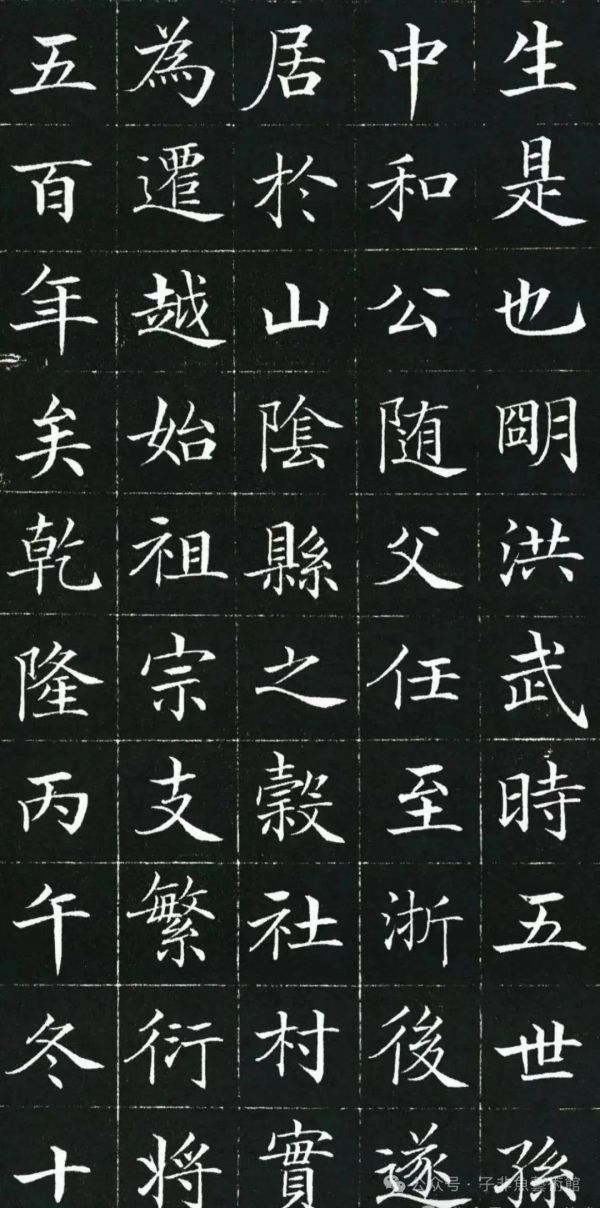 生是也明洪武時五世孫
中和公随父任至浙後遂
居於山陰縣之穀社村實
為遷越始祖宗支繁衍將
五百年矣乾隆丙午冬十
公众号·子非魚藝術館